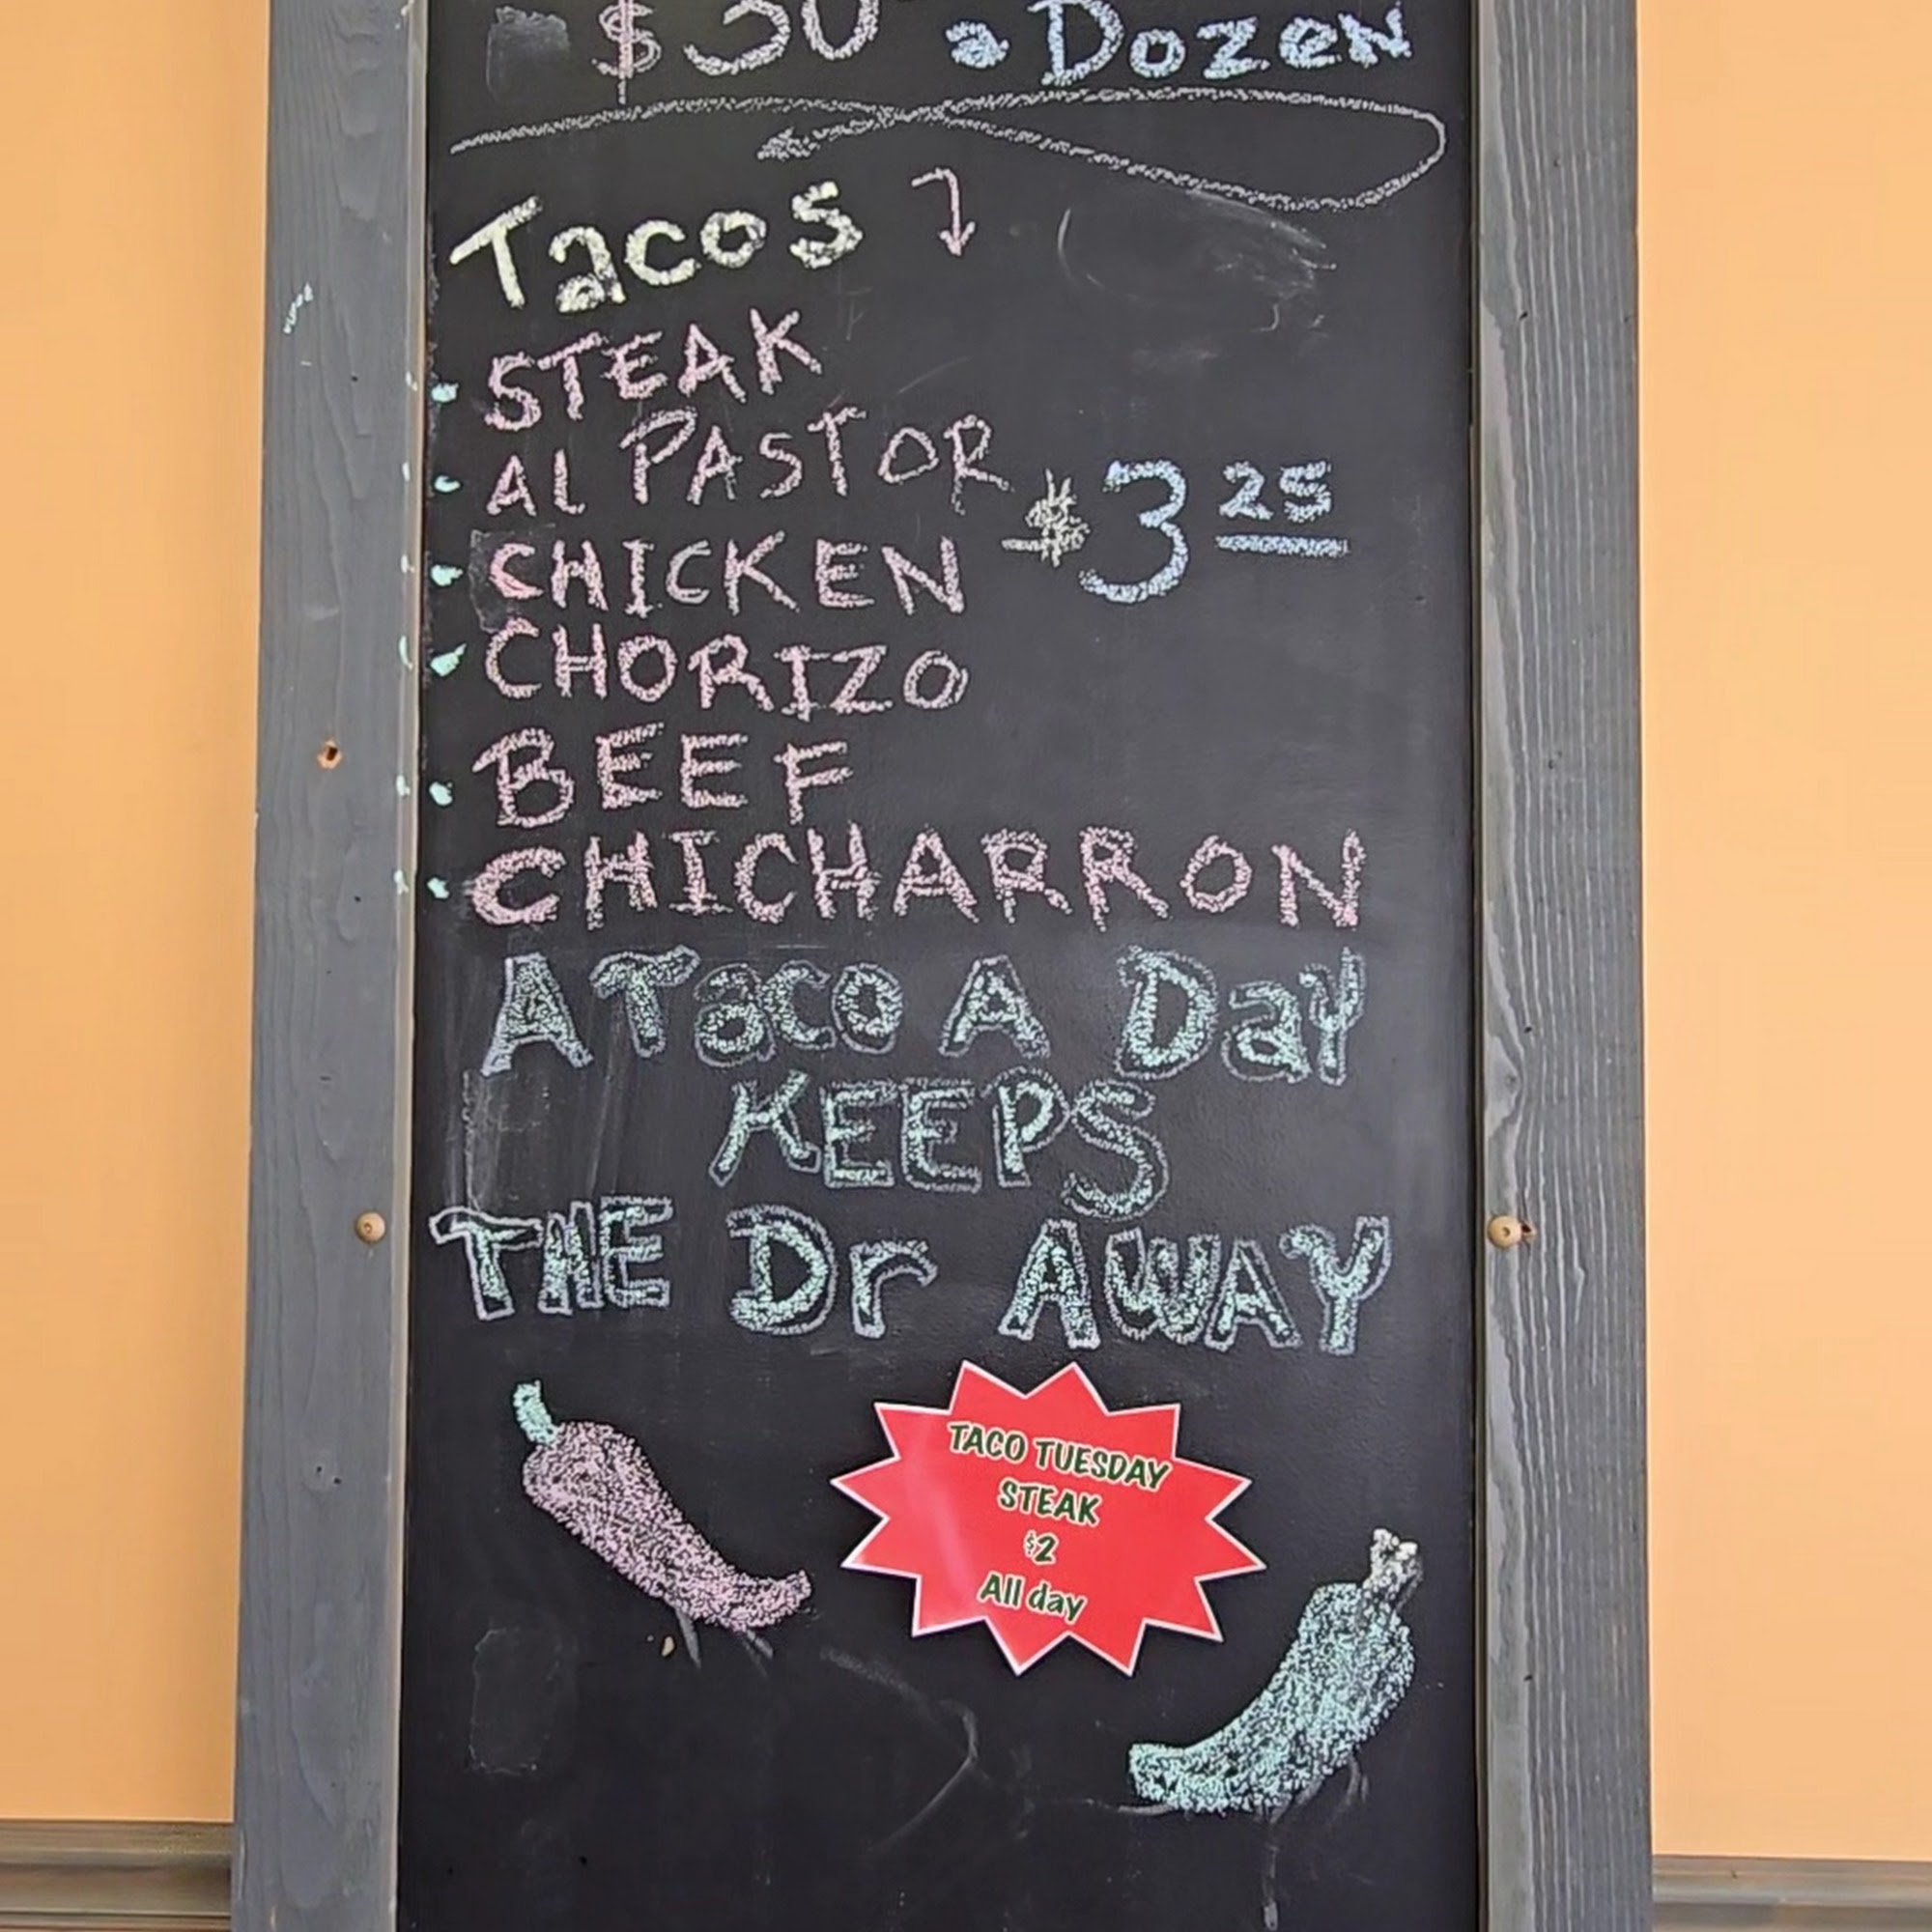 $30 a Dozen
Tacos
STEAK
AL PASTOR
$3 25
CHICKEN
CHORIZO
BEEF
CHICHARRON
A Taco A Day
KEEPS
THE Dr AWAY
TACO TUESDAY
STEAK
$2
All day